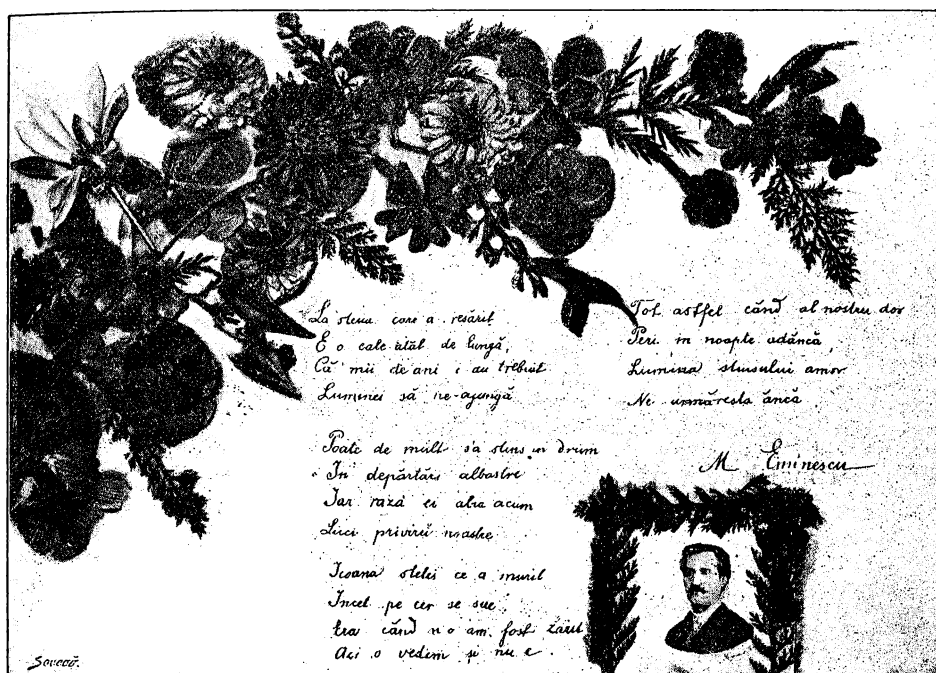 La steua care a resărit
E o cale atăt de lungă,
Că mii de ani i au trebuit
Luminei să ne-ajungă
Poate de mult s'a stins in drum
In depărtări albastre
Iar raza ei abia acum
Luci privirii noastre
Icoana stelei ce a murit
Incet pe cer se sue
Era cănd n'o am fost zărit
Azi o vedem și nu e.
Tot astfel cănd al nostru dor
Peri in noapte adăncă,
Lumina stinsului amor
Ne urmăresta ăncă
M Eminescu